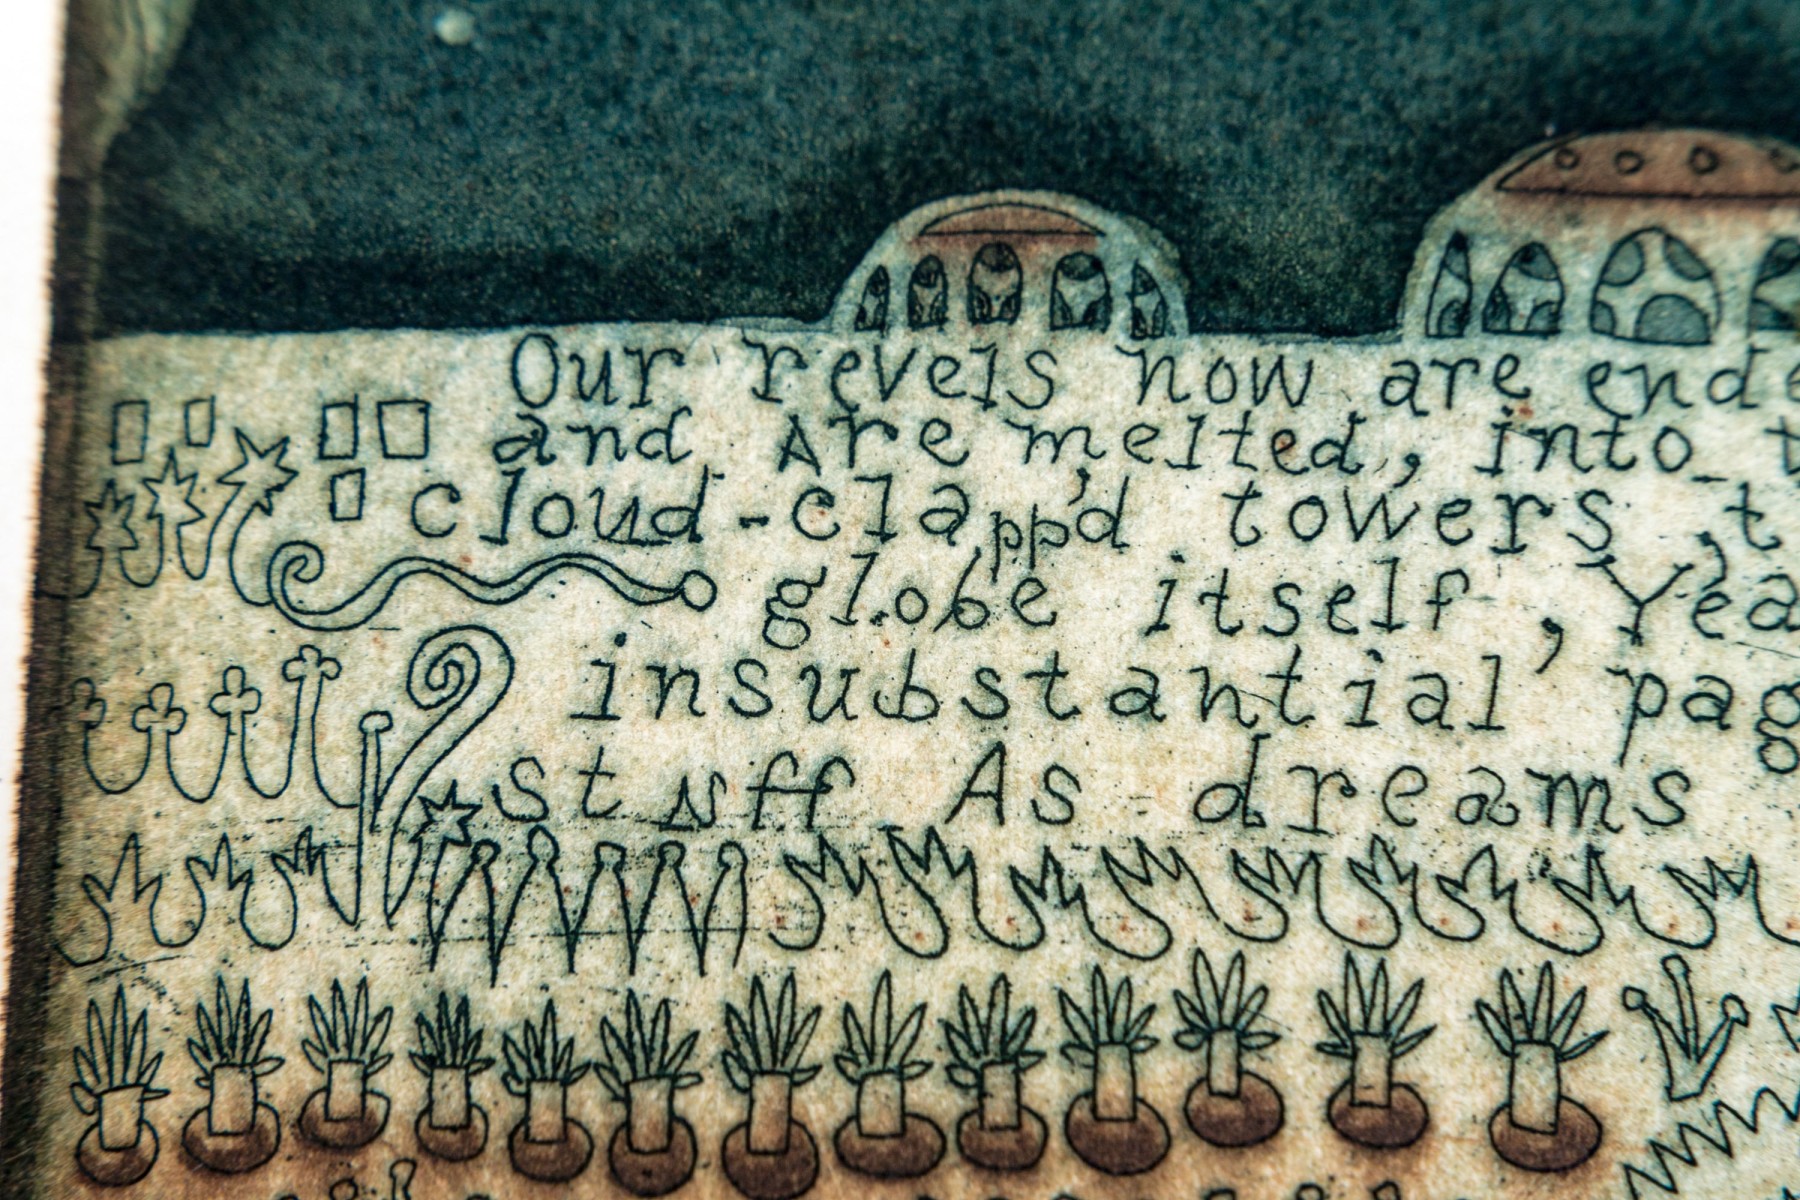 Our revels now are ende
and Are melted, into t
cloud-clapp'd towers, t
globe itself, Yea
insubstantial pag
stuff As dreams